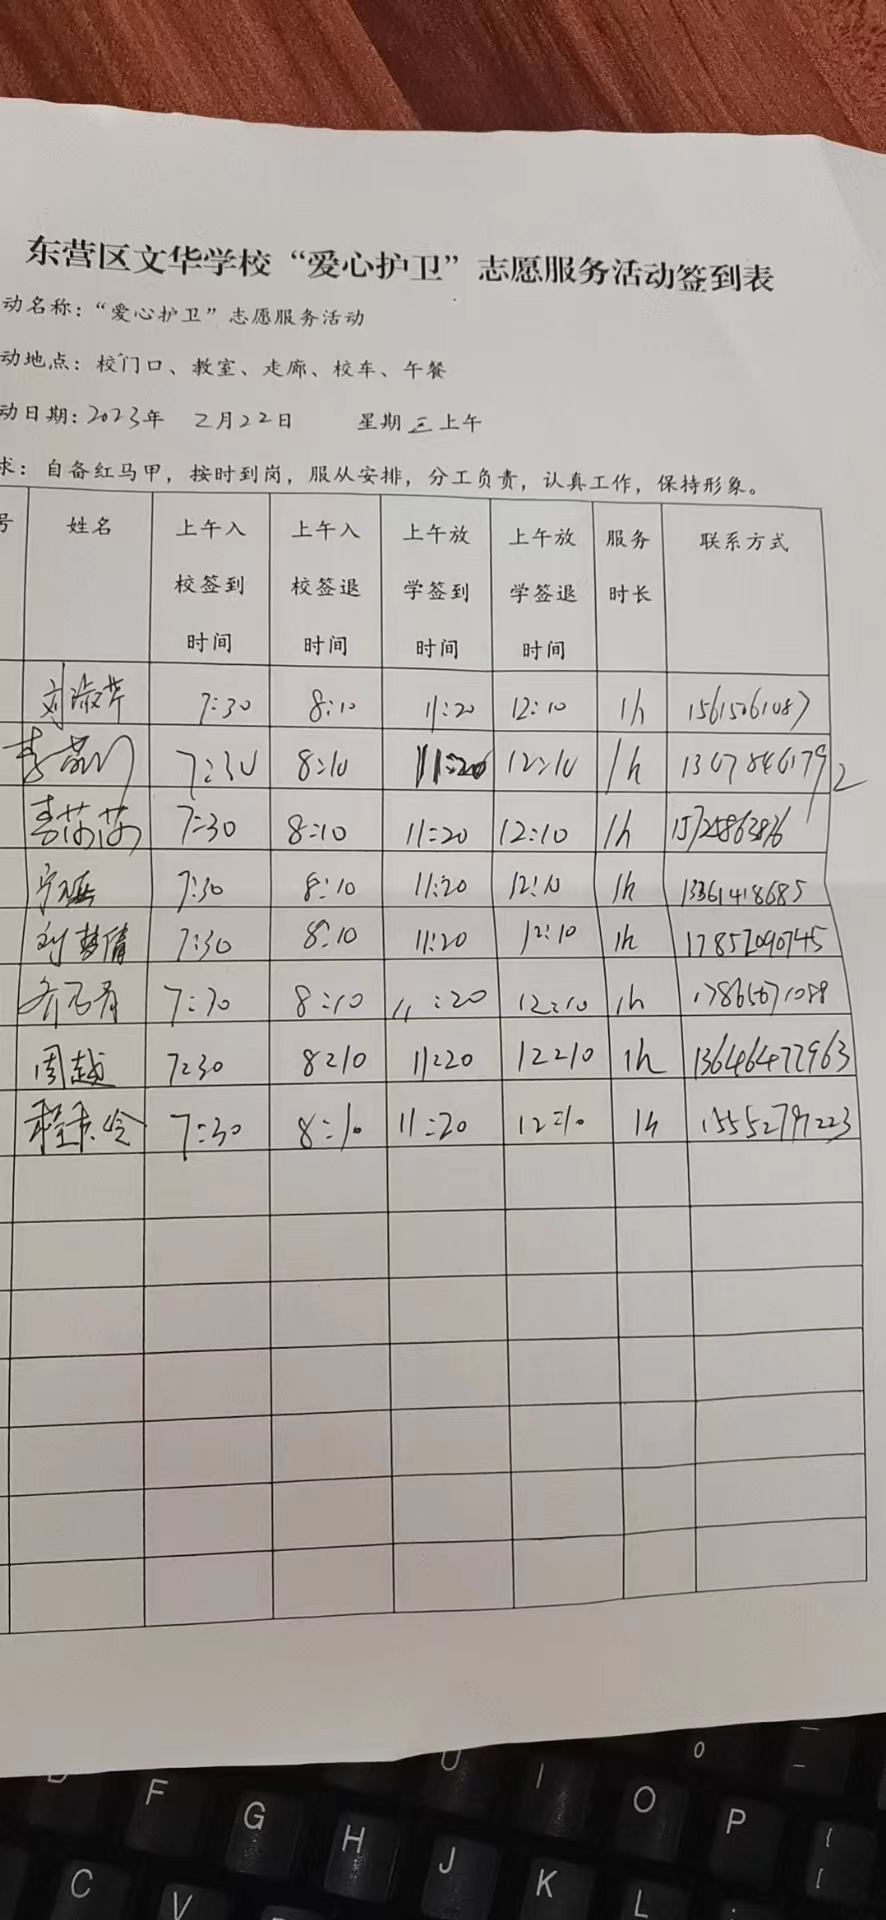 东营区文华学校“爱心护卫”志愿服务活动签到表
动名称：“爱心护卫”志愿服务活动
动地点：校门口、教室、走廊、校车、午餐
动日期：2023年 2月22日 星期三上午
求：自备红马甲，按时到岗，服从安排，分工负责，认真工作，保持形象。
号 姓名 上午入校签到时间 上午入校签退时间 上午放学签到时间 上午放学签退时间 服务时长 联系方式
刘淑芹 7:30 8:10 11:20 12:10 1h 15615061087
7:30 8:10 11:20 12:10 1h
7:30 8:10 11:20 12:10 1h
7:30 8:10 11:20 12:10 1h 13361418685
刘梦倩 7:30 8:10 11:20 12:10 1h 17852090745
7:30 8:10 11:20 12:10 1h
周越 7:30 8:10 11:20 12:10 1h 13646472963
7:30 8:10 11:20 12:10 1h
U I O P
F G H J K L
C V